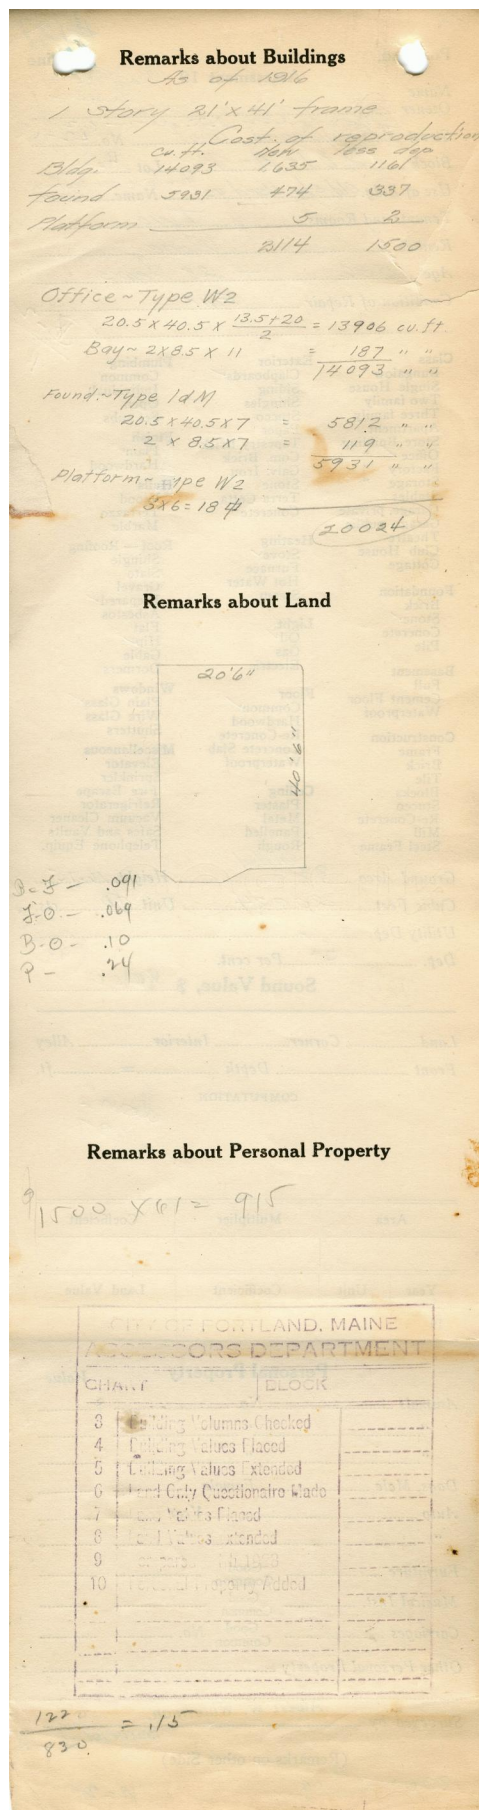 Remarks about Buildings
As of 1916
1 story 21'x41' frame
Cost of reproduction
cu.ft. New less dep
Bldg. 14093 1,635 1161
Found 5931 474 337
Platform 5 2
2114 1500
Office ~ Type W2
20.5 x 40.5 x 13.5+20 / 2 = 13906 cu.ft
Bay ~ 2x8.5 x 11 = 187 " "
14093 " "
Found. ~ Type 1dM
20.5 x 40.5 x 7 = 5812 " "
2 x 8.5x7 = 119 " "
5931 " "
Platform ~ Type W2
3x6 = 18
20024
Remarks about Land
20'6"
40'6"
B-F - .091
F-O - .069
B-O - .10
P - .24
Remarks about Personal Property
1500 x 61 = 915
CITY OF PORTLAND, MAINE
ASSESSORS DEPARTMENT
CHART BLOCK
3 Building Volumns Checked
4 Building Values Placed
5 Building Values Extended
6 Land Only Questionaire Made
7 Land Values Placed
8 Land Values Extended
9
10 Personal Property Added
122 / 830 = .15